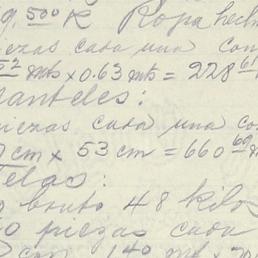 9.500 K Ropa hech
piezas cada una con
52 mts x 0.63 mts = 228 61
anteles:
piezas cada una co
cm x 53 cm = 660 69 m
elas:
bruto 48 kilos
0 piezas cada
con 140 m